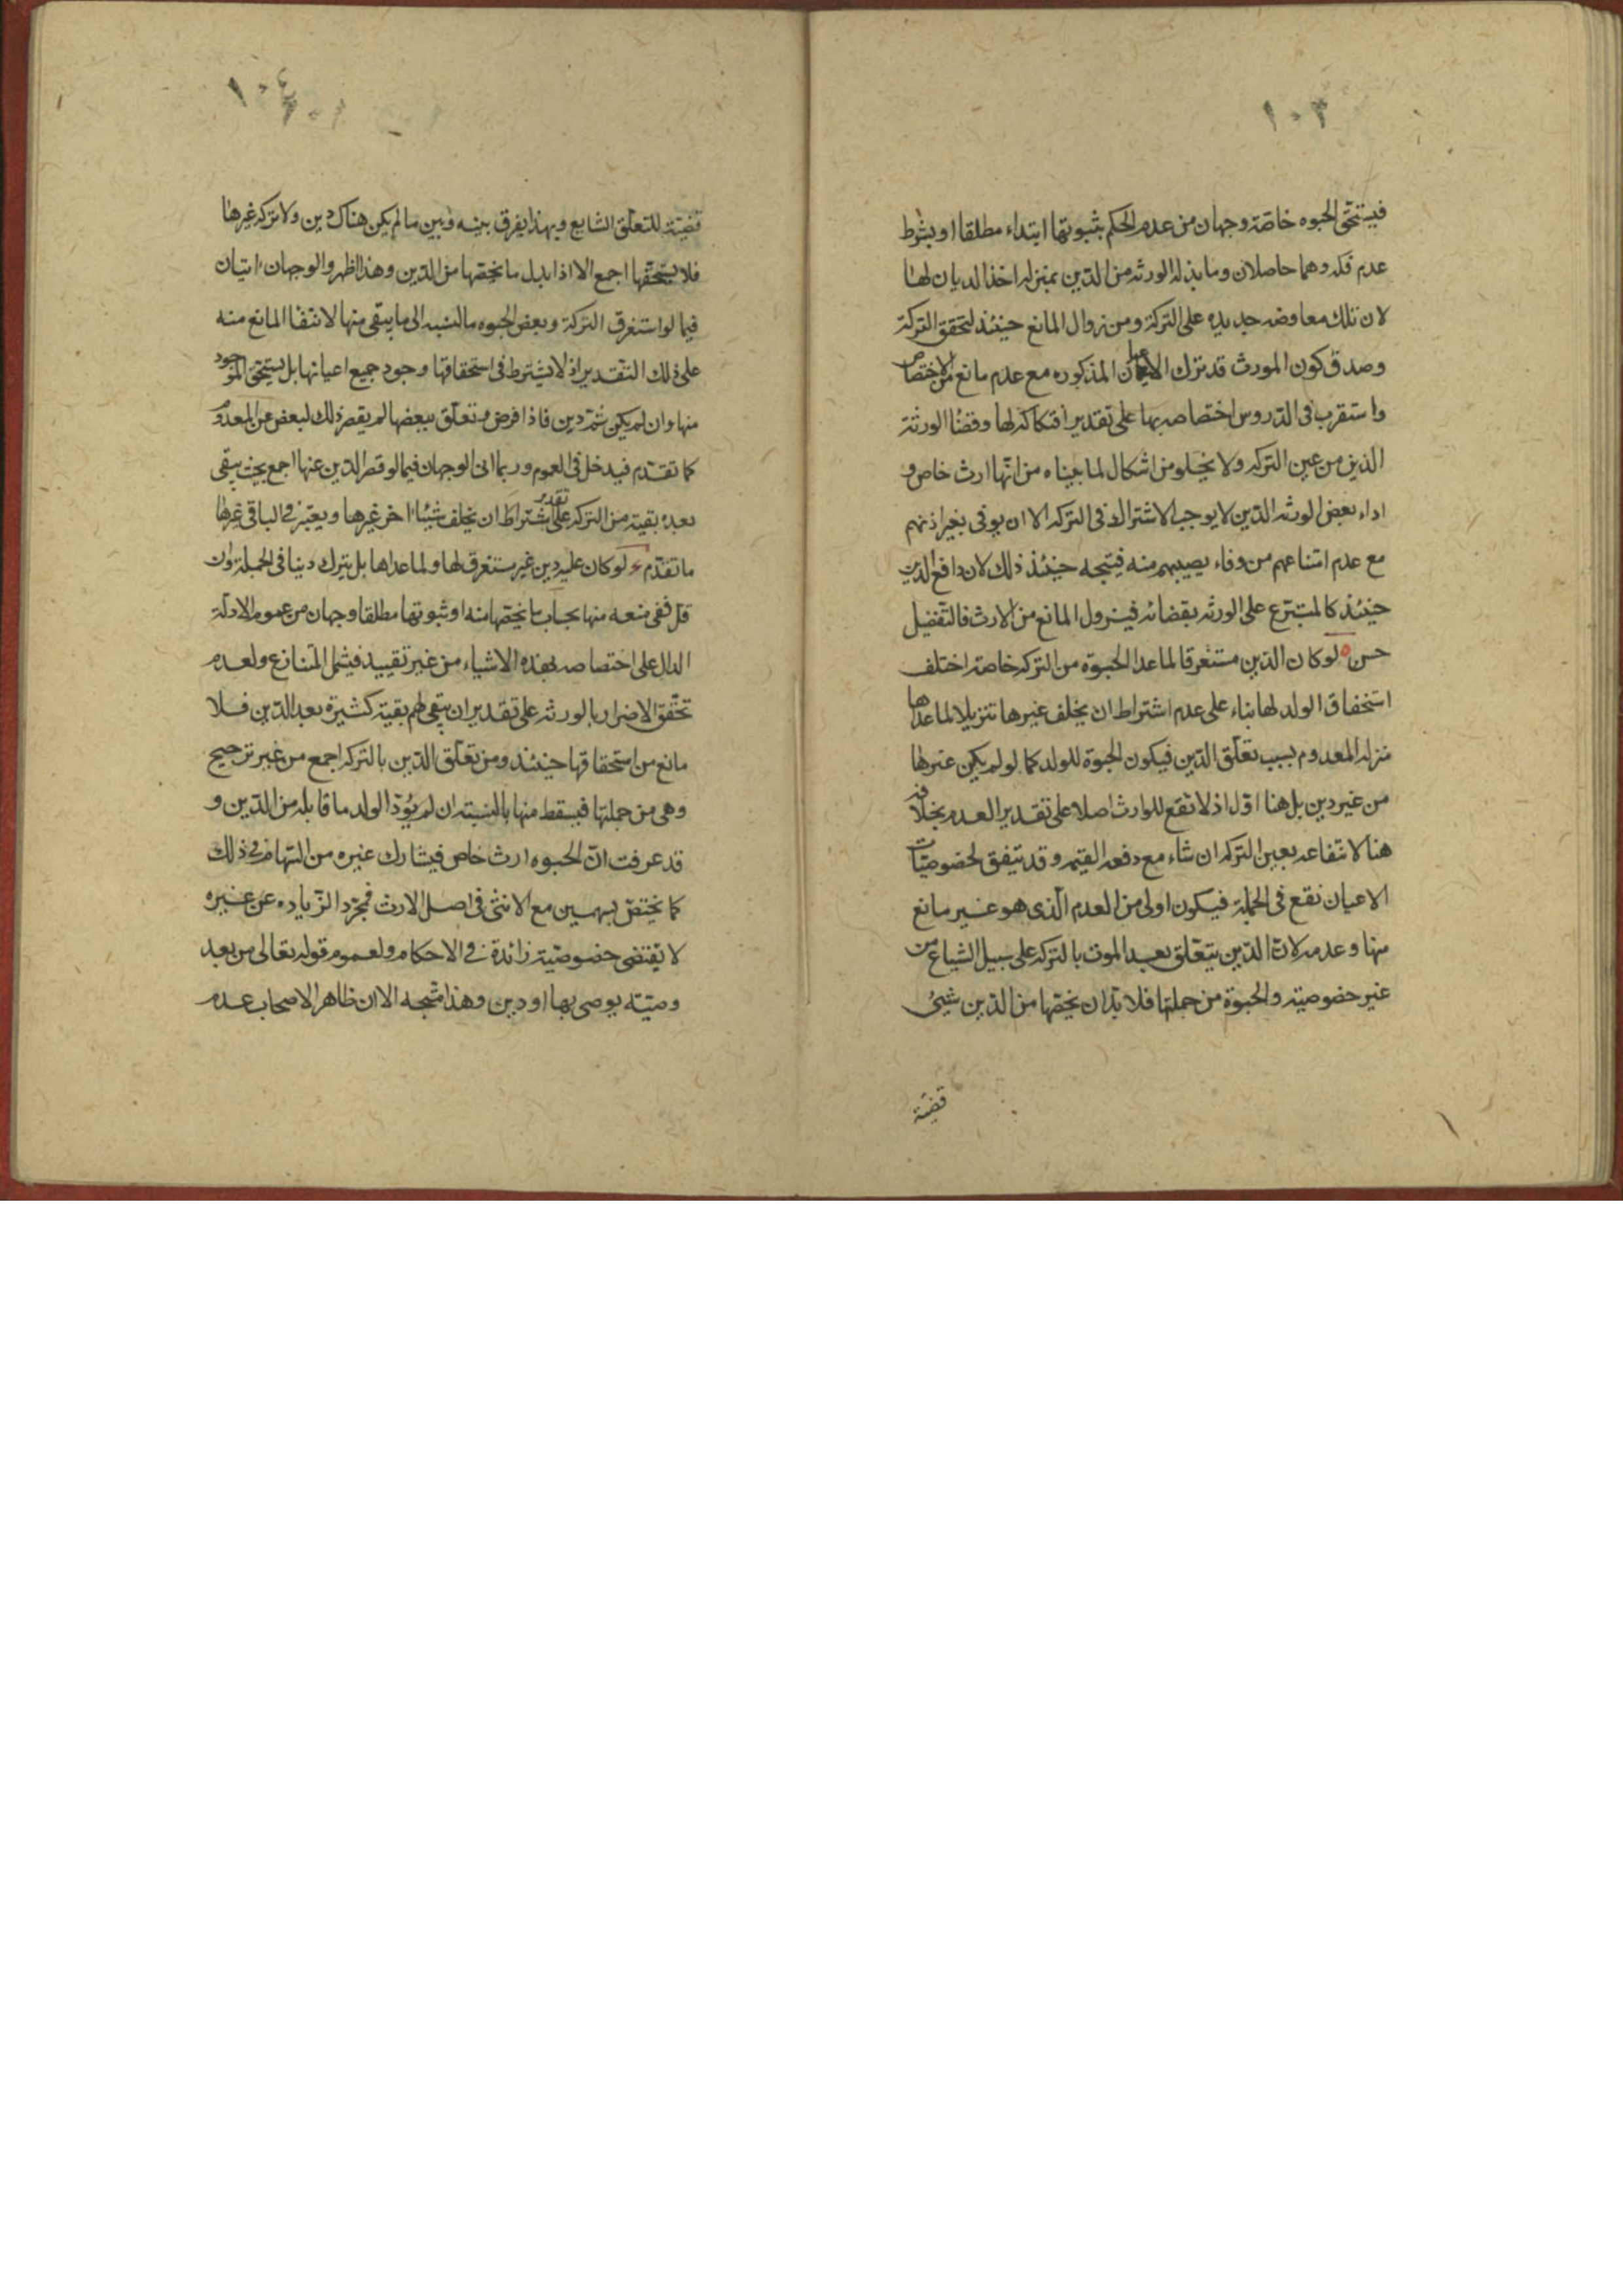 ١٠٣
فيستحق الحبوه خاصة وجهان من عدم الحكم بثبوتها ابتداء مطلقا او بشرط
عدم فكه وهما حاصلان وما بذله الورثه من الدين بمنزلة اخذ الديان لها
لان تلك معاوضه جديده على التركة ومن زوال المانع حينئذ لتحقق التركة
وصدق كون المورث قد ترك الاعيان المذكوره مع عدم مانع من الاختصاص
واستقرب فى الدروس اختصاصه بها على تقدير افتكاكه لها وقضا الورثة
الدين من عين التركه ولا يخلو من اشكال لما بيناه من انها ارث خاص و
اداء بعض الورثه الدين لا يوجب الاشتراك فى التركه الا ان يوفى بغير اذنهم
مع عدم امتناعهم من وفاء يصيبهم منه فيتجه حينئذ ذلك لان دافع الدين
حينئذ كالمتبرع على الورثه بقضائه فيزول المانع من الارث فالتفضيل
حسن ه لو كان الدين مستغرقا لما عدا الحبوة من التركه خاصة اختلف
استحقاق الولد لها بناء على عدم اشتراط ان يخلف غيرها تنزيلا لما عداها
منزلة المعدوم بسبب تعلق الدين فيكون الحبوة للولد كما لو لم يكن غيرها
من غير دين بل هنا اول اذ لا نفع للوارث اصلا على تقدير العدم بخلافه
هنا لانتفاعه بعين التركه ان شاء مع دفعه القيمه وقد يتفق لخصوصيات
الاعيان نفع فى الجملة فيكون اولى من العدم الذى هو غير مانع
منها وعدمه لان الدين يتعلق بعد الموت بالتركه على سبيل الشياع من
غير خصوصيته والحبوة من جملتها فلا بد ان يخصها من الدين شىء
قضية
١٠٤
قضية للتعلق الشايع وبهذا يفرق بينه وبين ما لم يكن هناك دين ولا تركه غيرها
فلا يستحقها اجمع الا اذا بدل ما يخصها من الدين وهذا اظهر والوجهان اتيان
فيما لو استغرق التركة وبعض الحبوه بالنسبه الى ما يبقى منها لانتفا المانع منه
على ذلك التقدير اذ لا يشترط فى استحقاقها وجود جميع اعيانها بل يستحق الموجود
منها وان لم يكن ثمه دين فاذا فرض تعلق ببعضها لم يقصر ذلك لبعض عن المعدوم
كما تقدم فيدخل فى العموم وربما اتى الوجهان فيما لو قصر الدين عنها اجمع بحيث يبقى
بعده بقية من التركه على تقدير اشتراط ان يخلف شيئا اخر غيرها ويعتبر فى الباقى غيرها
ما تقدم و لو كان عليه دين غير مستغرق لها ولما عداها بل يترك دينا فى الجملة وان
قل ففى منعه منها بحساب ما يخصها منه او ثبوتها مطلقا وجهان من عموم الادلة
الدال على اختصاصه بهذه الاشياء من غير تقييد فيشمل المتنازع ولعدم
تحقق الاضرار بالورثه على تقدير ان يبقى لهم بقية كثيرة بعد الدين فلا
مانع من استحقاقها حينئذ ومن تعلق الدين بالتركه اجمع من غير ترجيح
وهى من جملتها فيسقط منها بالنسبته ان لم يؤد الولد ما قابله من الدين و
قد عرفت ان الحبوه ارث خاص فيشارك غيره من السهام فى ذلك
كما يختص بسهمين مع الانثى فى اصل الارث فمجرد الزياده عن غيره
لا يقتضى خصوصية زائدة فى الاحكام ولعموم قوله تعالى من بعد
وصيته يوصى بها او دين وهذا متجه الا ان ظاهر الاصحاب عدم